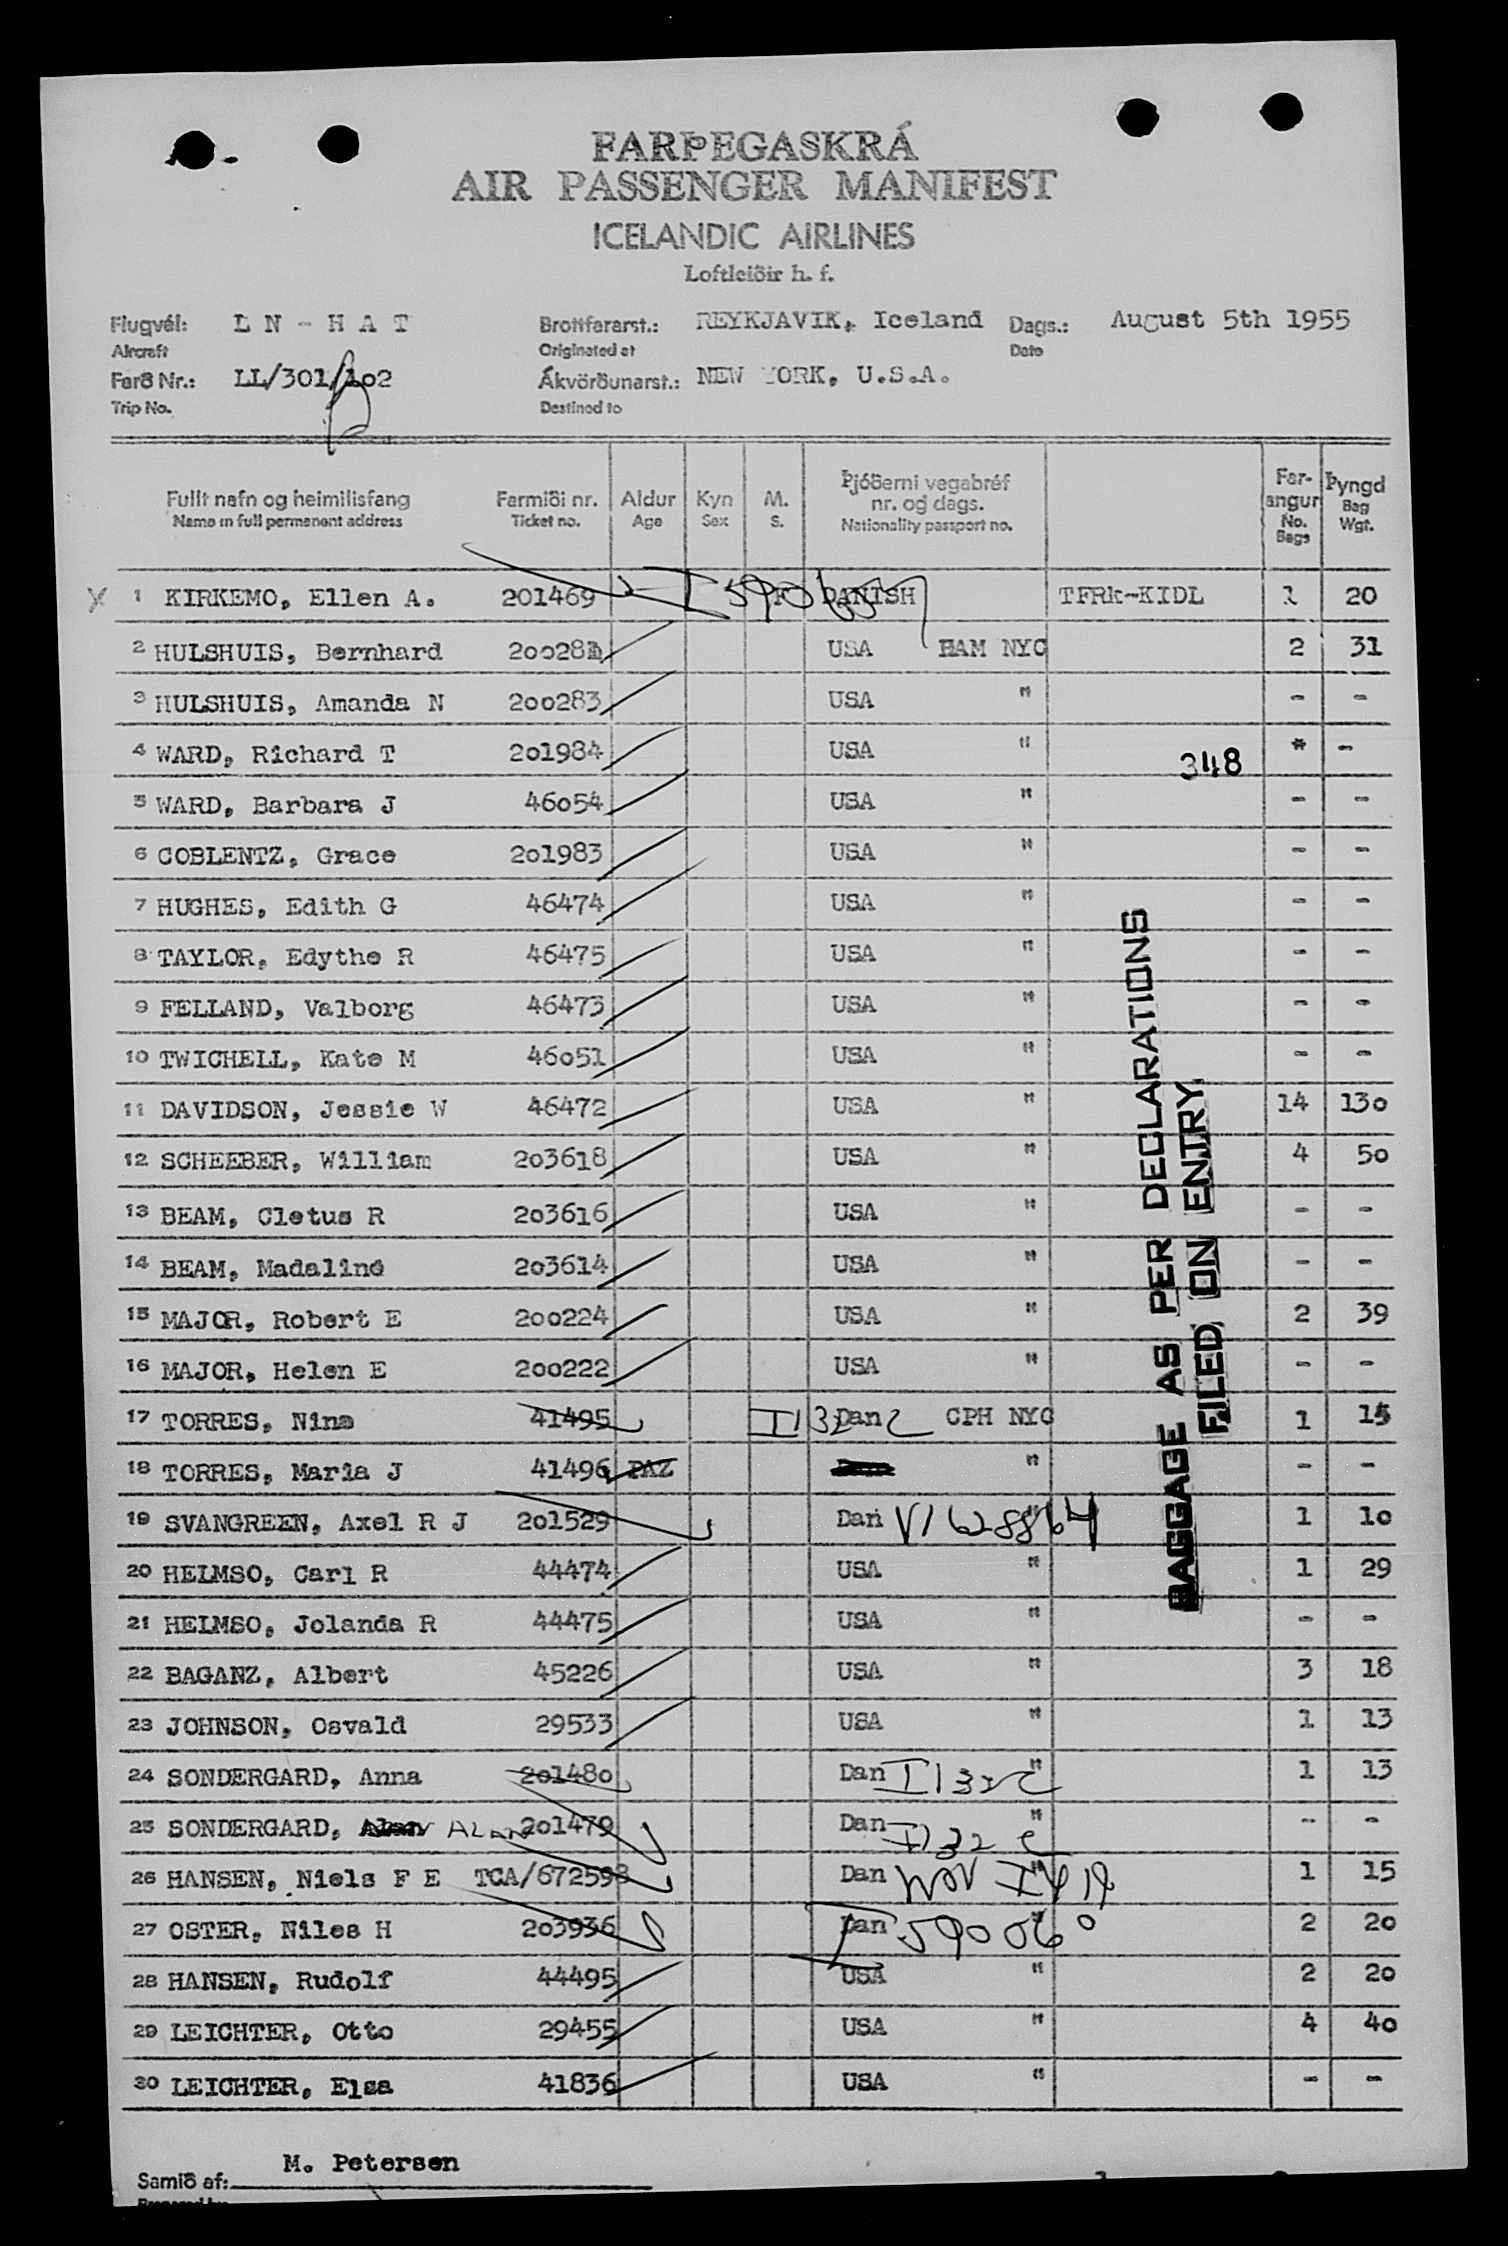 FARÞEGASKRÁ
AIR PASSENGER MANIFEST
ICELANDIC AIRLINES
Loftleiðir h. f.
Flugvél: LN-HAT Brottfararst.: REYKJAVIK, Iceland Dags.: August 5th 1955
Aircraft Originated at Date
Ferð Nr.: LL/301/102 Ákvörðunarst.: NEW YORK, U.S.A.
Trip No. Destined to
Fullt nafn og heimilisfang Farmiði nr. Aldur Kyn M. Þjóðerni vegabréf nr. og dags. Far-angur Þyngd
Name in full permanent address Ticket no. Age Sex S. Nationality passport no. No. Bags Bag Wgt.
X 1 KIRKEMO, Ellen A. 201469 F DANISH TFRk-KIDL 1 20
2 HULSHUIS, Bernhard 20028 USA HAM NYC 2 31
3 HULSHUIS, Amanda N 200283 USA " - -
4 WARD, Richard T 201984 USA " 348 * -
5 WARD, Barbara J 46054 USA " - -
6 COBLENTZ, Grace 201983 USA " - -
7 HUGHES, Edith G 46474 USA " - -
8 TAYLOR, Edythe R 46475 USA " - -
9 FELLAND, Valborg 46473 USA " - -
10 TWICHELL, Kate M 46051 USA " - -
11 DAVIDSON, Jessie W 46472 USA " 14 130
12 SCHEEBER, William 203618 USA " 4 50
13 BEAM, Cletus R 203616 USA " - -
14 BEAM, Madaline 203614 USA " - -
15 MAJOR, Robert E 200224 USA " 2 39
16 MAJOR, Helen E 200222 USA " - -
17 TORRES, Nina 41495 I 132 Dan CPH NYC 1 15
18 TORRES, Maria J 41496 PAZ " - -
19 SVANGREEN, Axel R J 201529 Dan V1628864 " 1 10
20 HELMSO, Carl R 44474 USA " 1 29
21 HELMSO, Jolanda R 44475 USA " - -
22 BAGANZ, Albert 45226 USA " 3 18
23 JOHNSON, Osvald 29533 USA " 1 13
24 SONDERGARD, Anna 201480 Dan I 132 c " 1 13
25 SONDERGARD, Alan ALAN 201479 Dan I 132 c " - -
26 HANSEN, Niels F E TCA/672598 Dan " 1 15
27 OSTER, Niles H 203936 Dan I 590060 " 2 20
28 HANSEN, Rudolf 44495 USA " 2 20
29 LEICHTER, Otto 29455 USA " 4 40
30 LEICHTER, Elsa 41836 USA " - -
BAGGAGE AS PER DECLARATIONS
FILED ON ENTRY.
M. Petersen
Samið af: